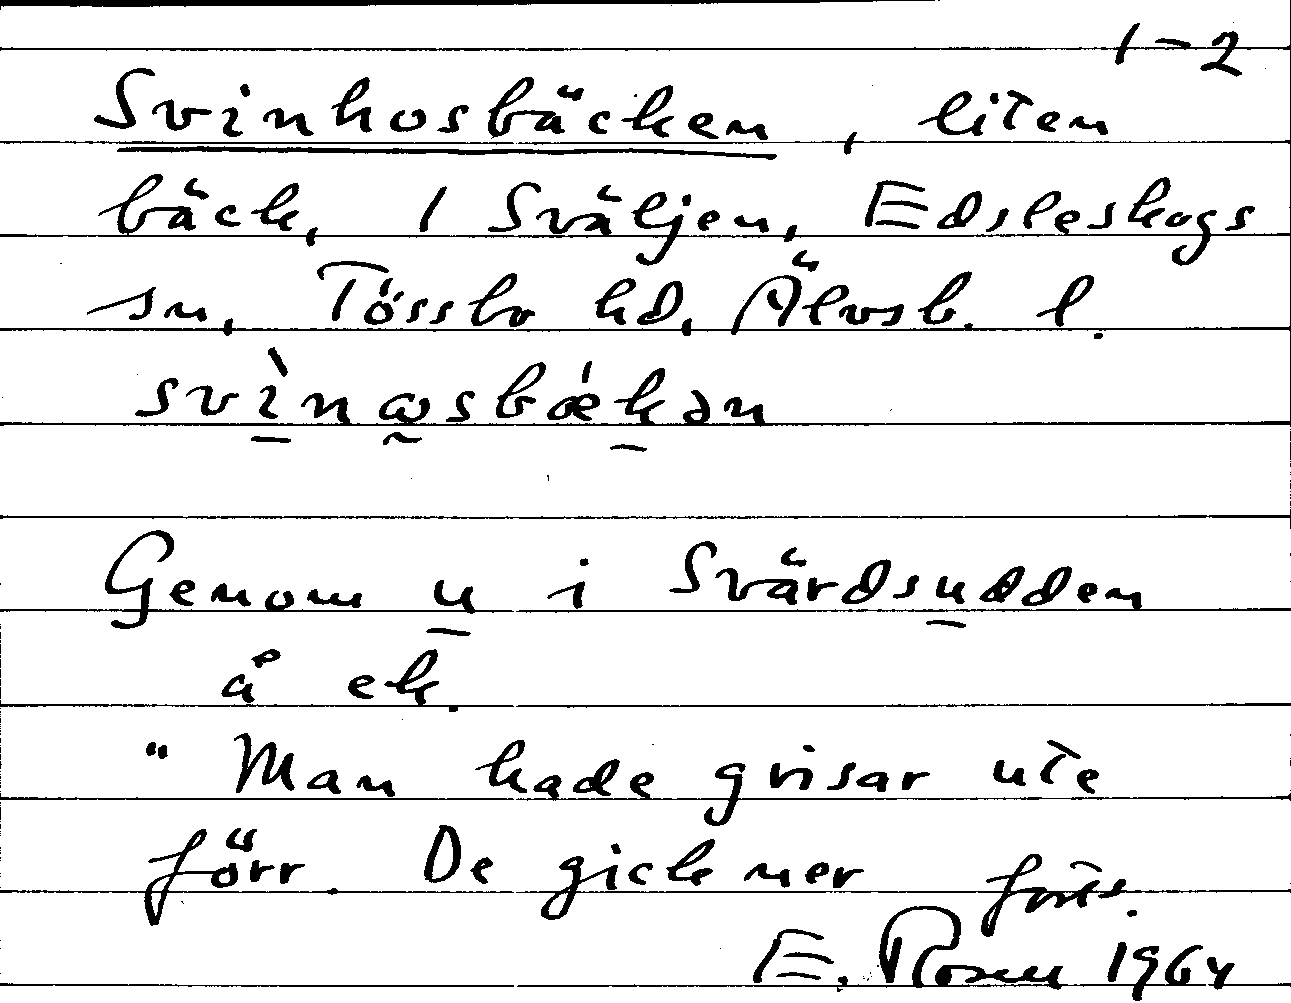 1-2
Svinhosbäcken, liten
bäck, 1 Sväljen, Edsleskogs
sn, Tössbo hd, Älvsb. l.
svìnasbǽkən
Genom u i Svärdsudden
å ek.
" Man hade grisar ute
förr. De gick ner forts.
E. Rosen 1964